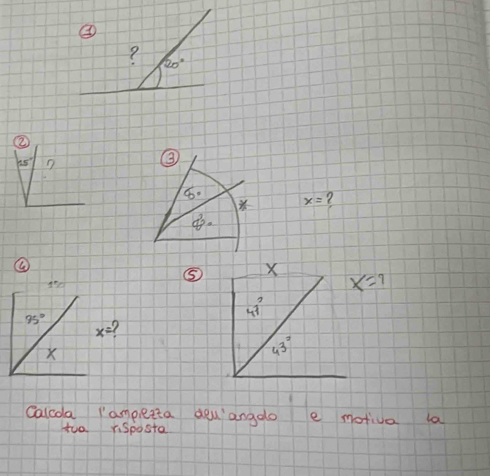 ①
? 20°
②
25° ?
③
x = ?
④
75°
x = ?
x
⑤
x
x = ?
43°
Calcola l'ampiezza dell'angolo e motiva la
tua risposta